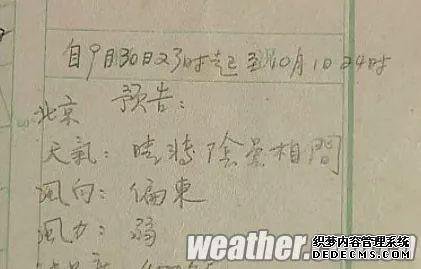 自9月30日23时起至10月1日24时
预告：
北京
天氣：晴轉陰曇相間
風向：偏東
風力：弱
weather.
织梦内容管理系统
DEDECMS.COM